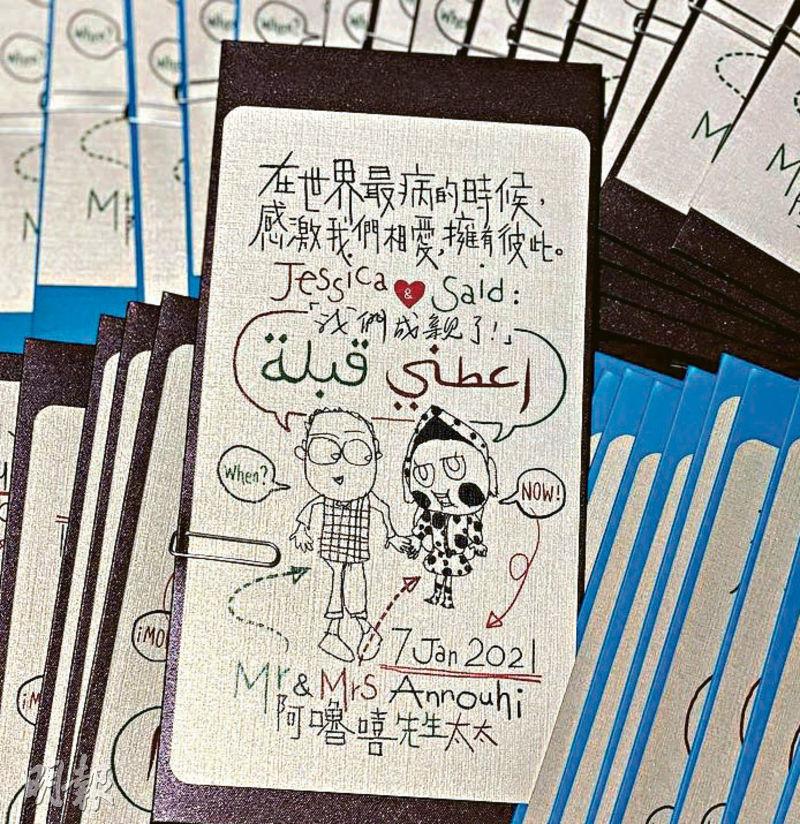 在世界最病的時候，
感激我們相愛，擁有彼此。
Jessica & Said：
「我們成親了！」
اعطني قبلة
When?
NOW!
7 Jan 2021
Mr & Mrs Annouhi
阿嚕嘻先生太太
When?
When?
When?
明報